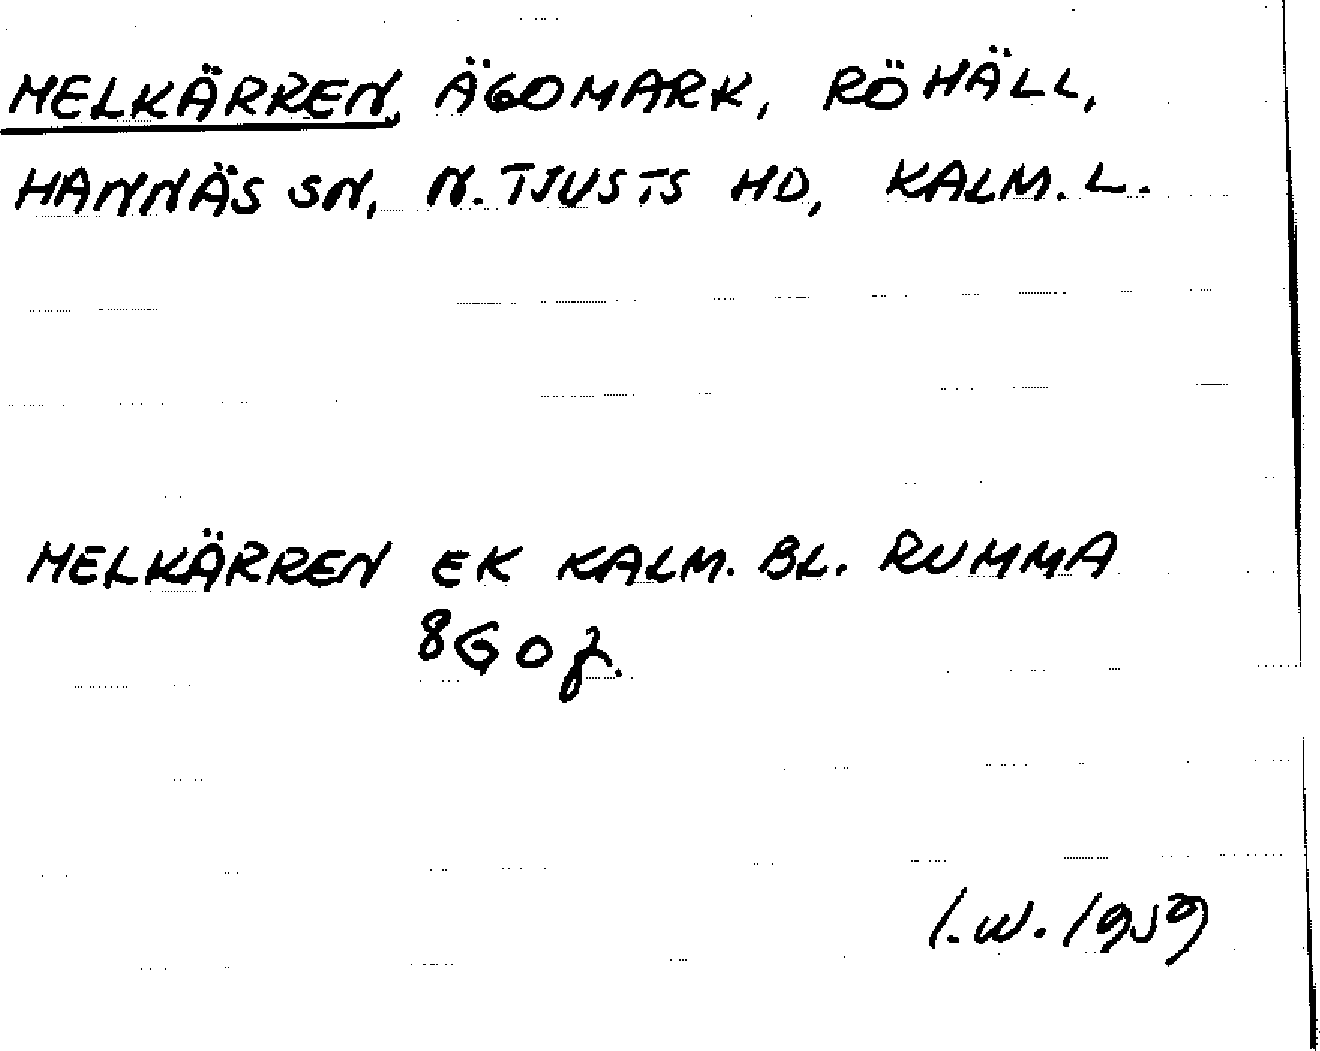 MELKÄRREN, ÄGOMARK, RÖHÄLL,
HANNÄS SN, N. TJUSTS HD, KALM. L.
MELKÄRREN EK KALM. BL. RUMMA
8G0f.
I.W. 1959